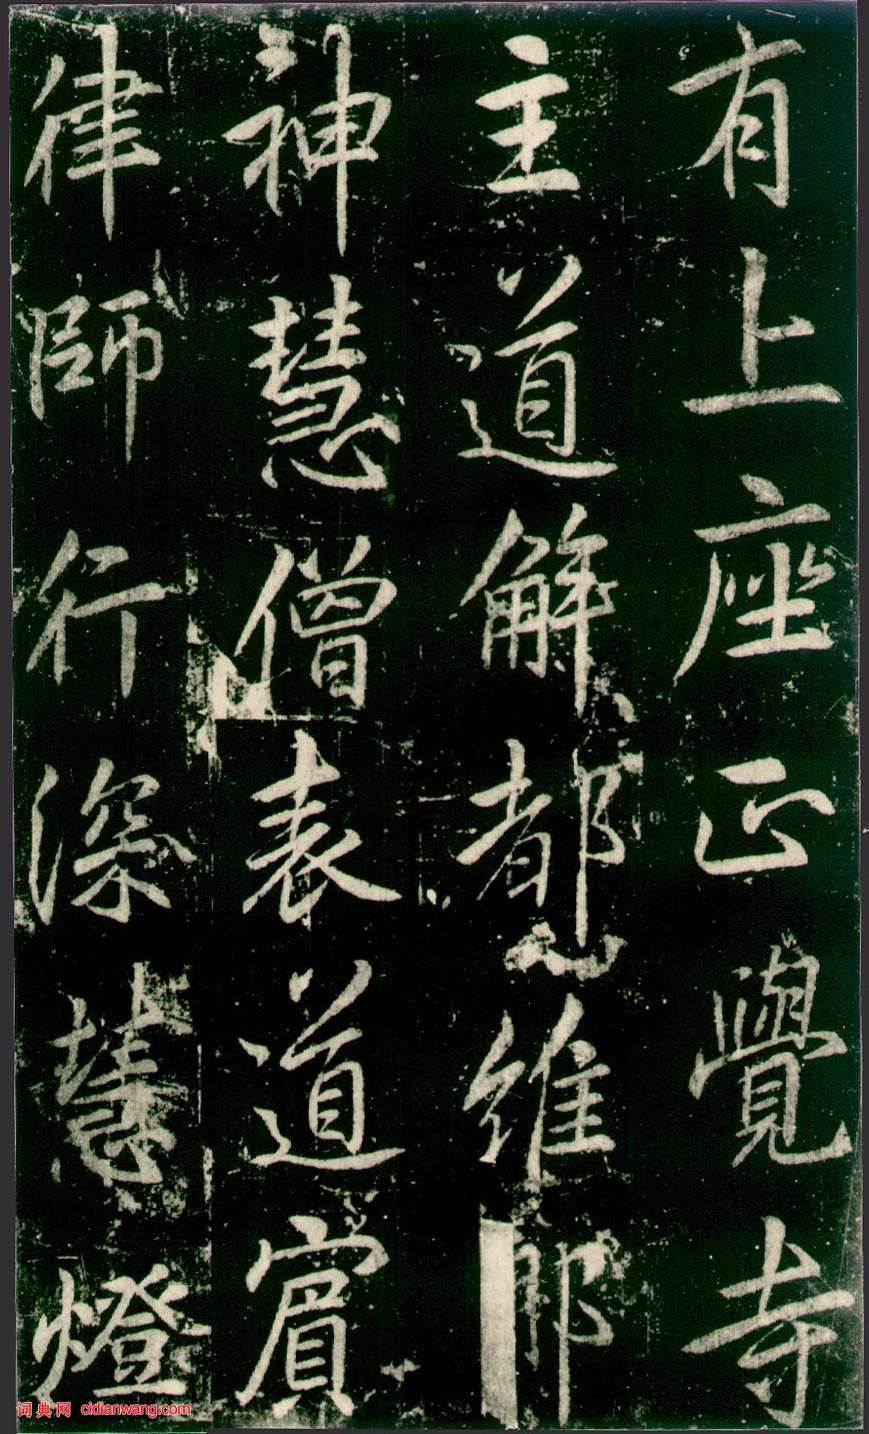 有上座正覺寺
主道解都維那
神慧僧表道賓
律師行深慧燈
词典网 cidianwang.com